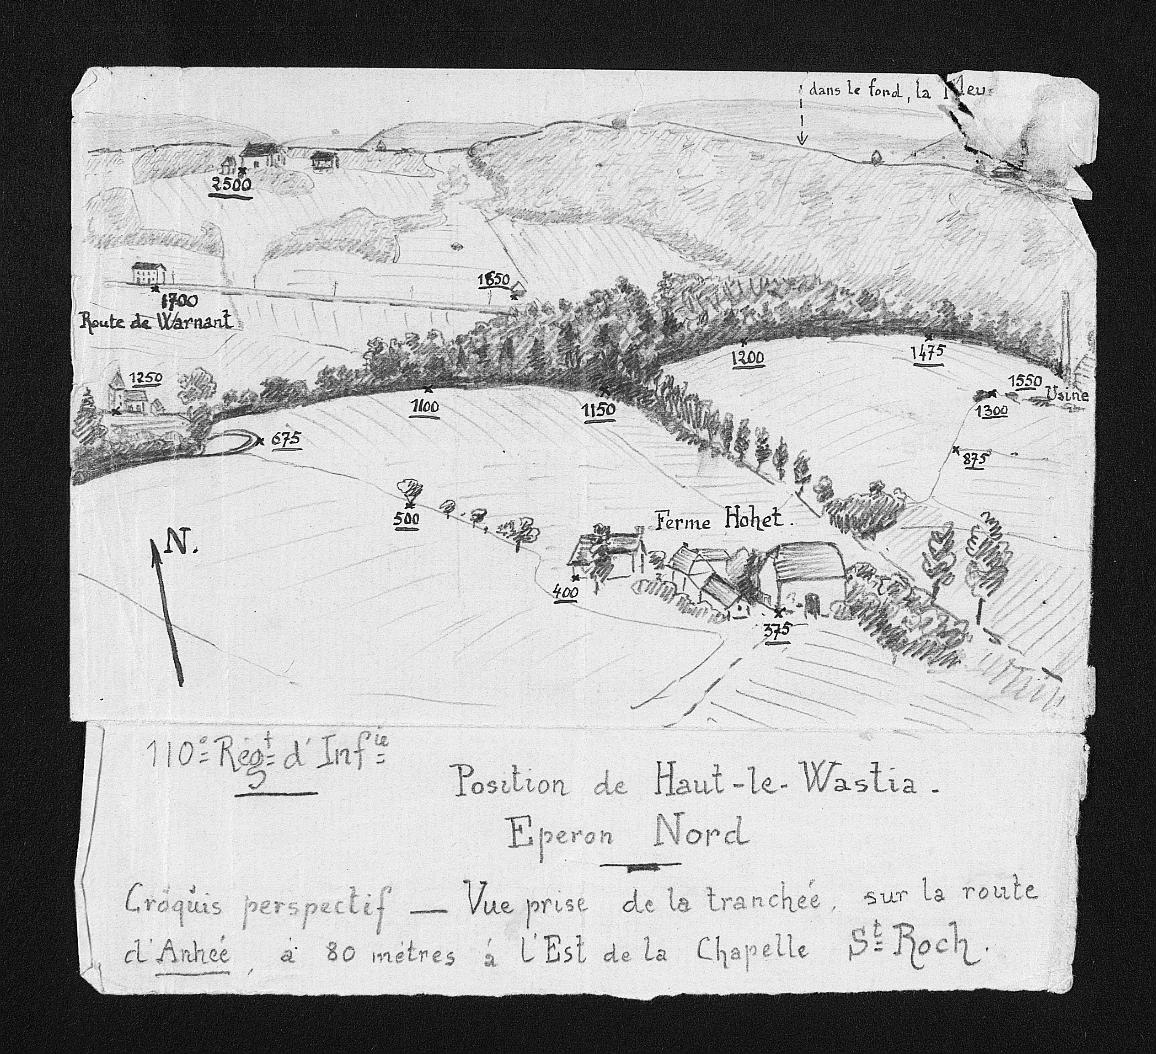 dans le fond, la Meu
2500
1850
1700
Route de Warnant
1250
1200
1475
1550
Usine
1100
1150
1300
675
875
500
Ferme Hohet.
N.
400
375
110e Régt d'Infie
Position de Haut-le-Wastia.
Eperon Nord
Croquis perspectif — Vue prise de la tranchée, sur la route
d'Anhée, à 80 mètres à l'Est de la Chapelle St Roch.